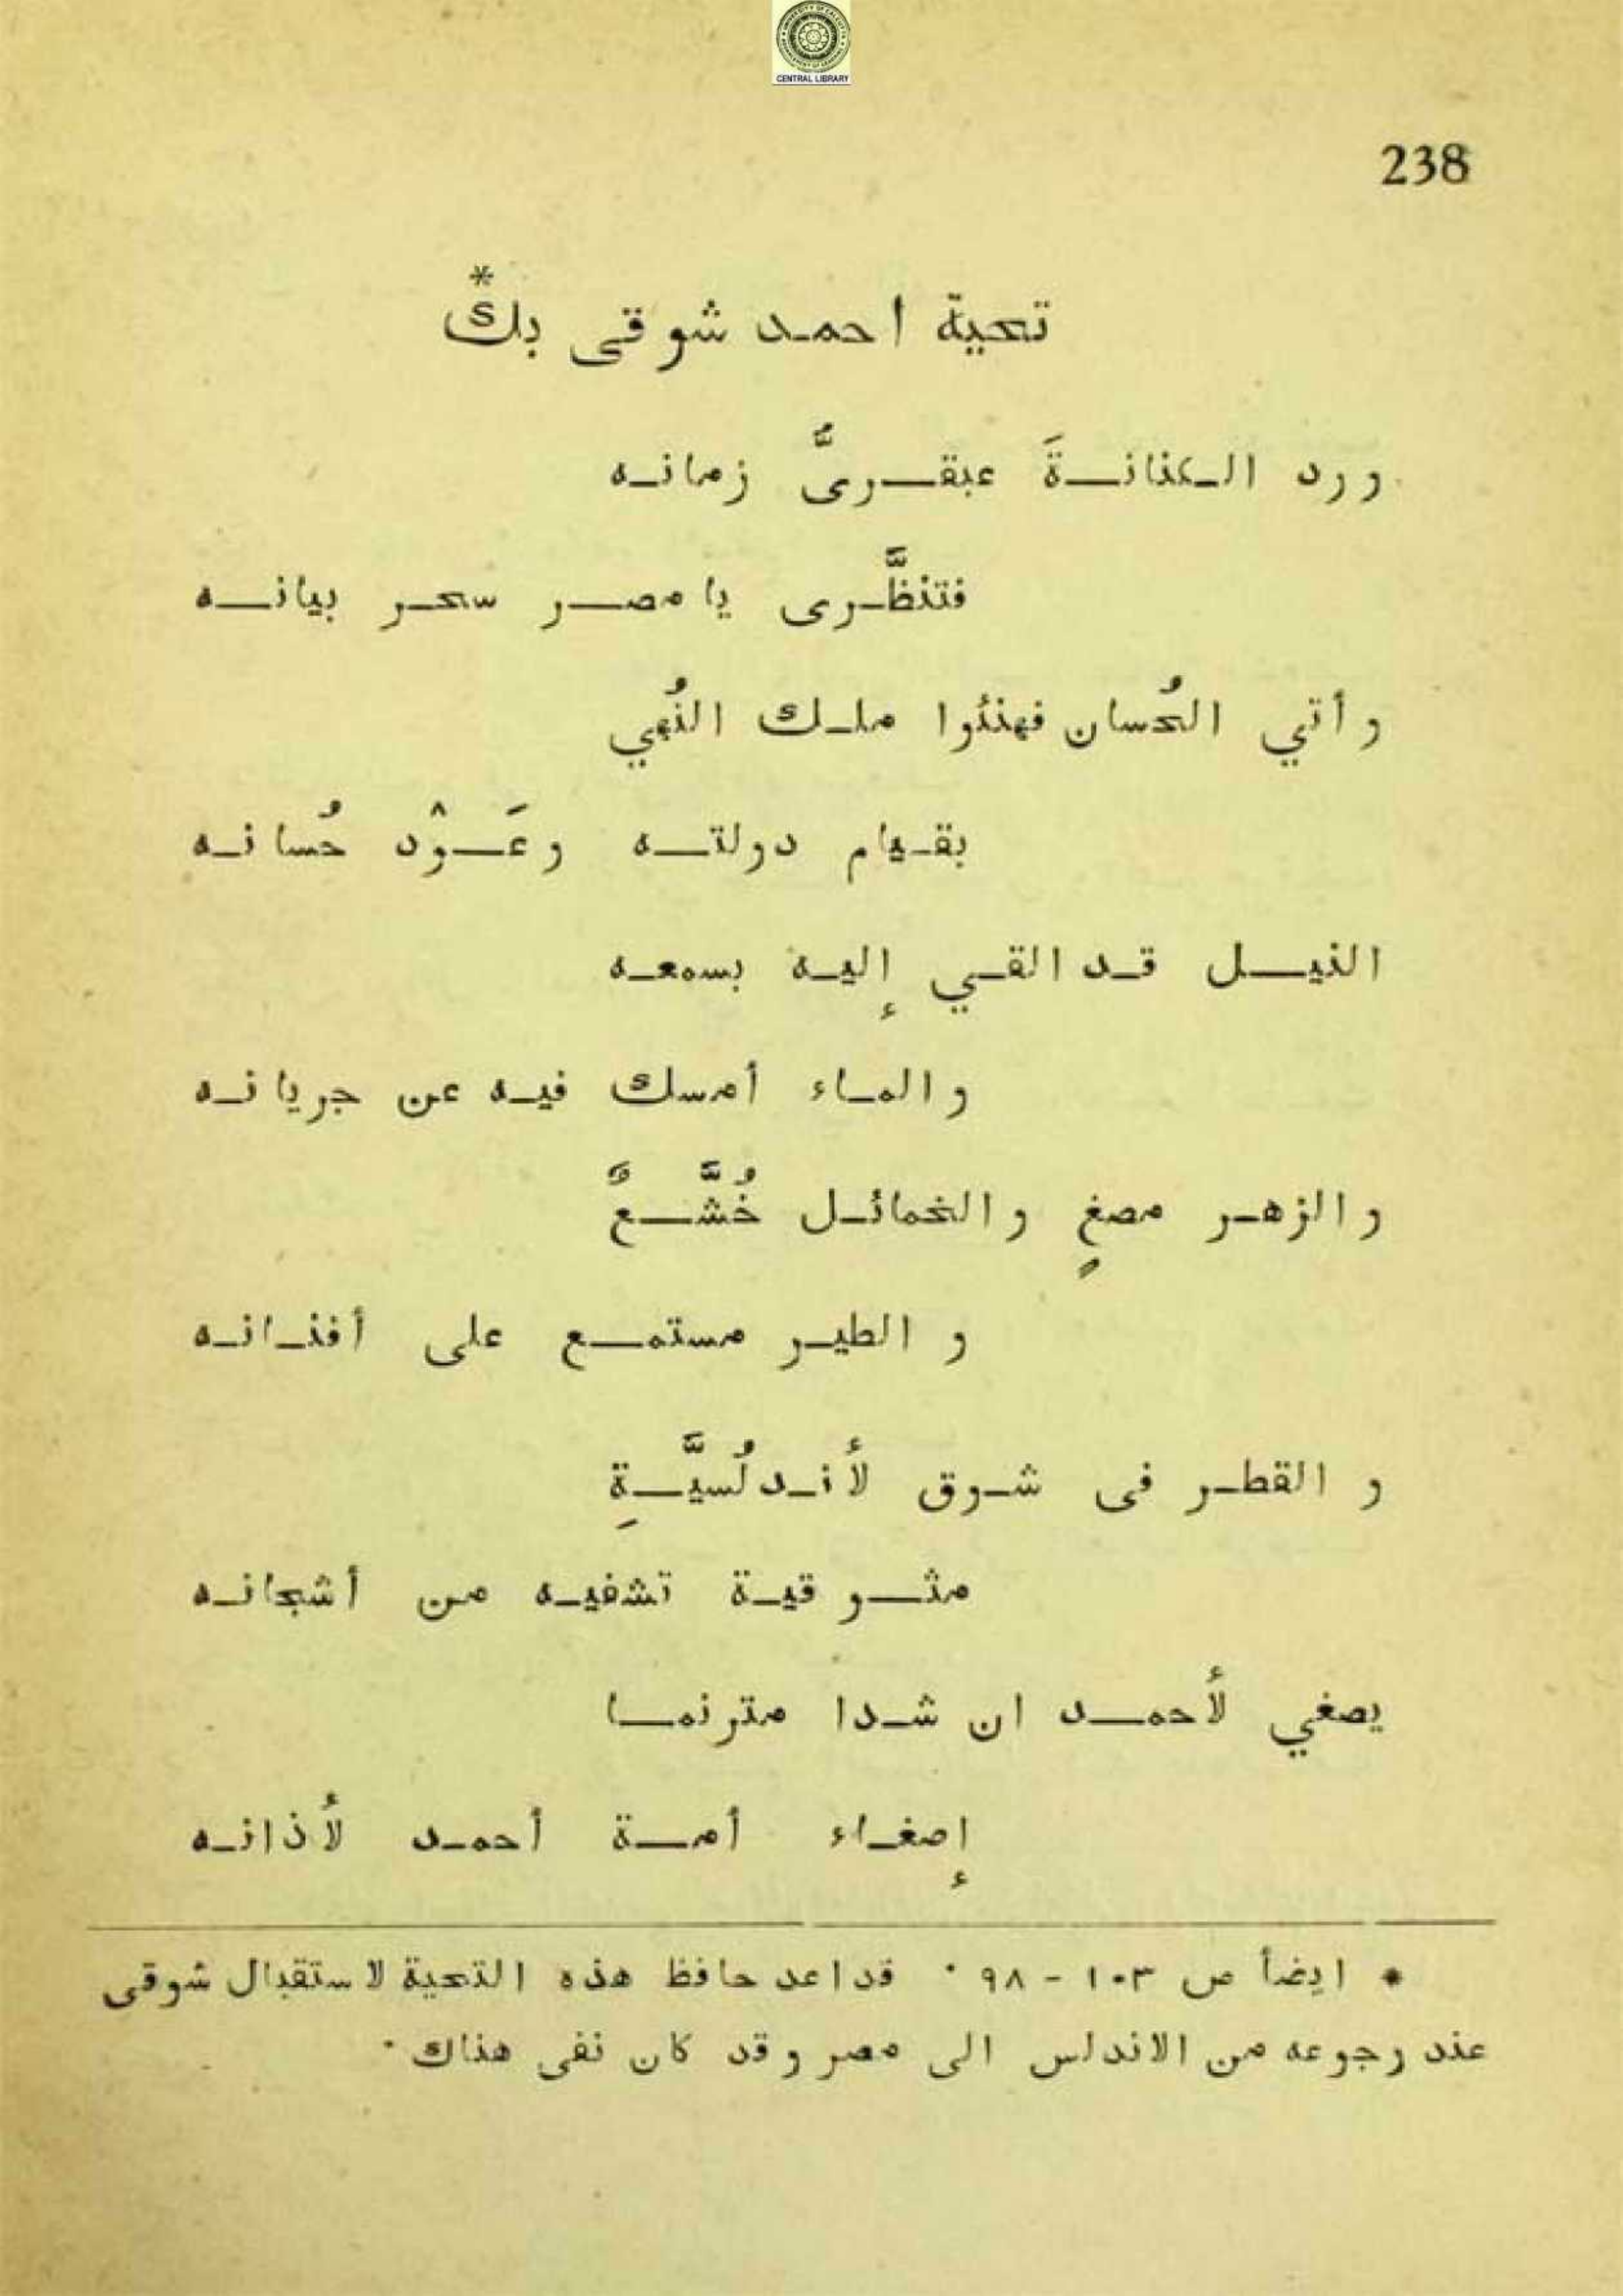 CENTRAL LIBRARY
238
تحية احمد شوقى بك*
ورد الكنانةَ عبقرىُّ زمانه
فتنظَّرى يا مصر سحر بيانه
وأتي الحُسان فهنئوا ملك النُهي
بقيام دولته وعَوْد حُسانه
النيل قد القي إليه بسمعه
والماء أمسك فيه عن جريانه
والزهر مصغٍ والخمائل خُشَّعٌ
والطير مستمع على أفنانه
والقطر فى شوق لأندلُسيَّةِ
مثوقية تشفيه من أشجانه
يصغي لأحمد ان شدا مترنما
إصغاء أمة أحمد لأذانه
* ايضأ ص ١٠٣ - ٩٨ ٠ قد اعد حافظ هذه التحية لاستقبال شوقى
عند رجوعه من الاندلس الى مصر وقد كان نفى هناك ٠